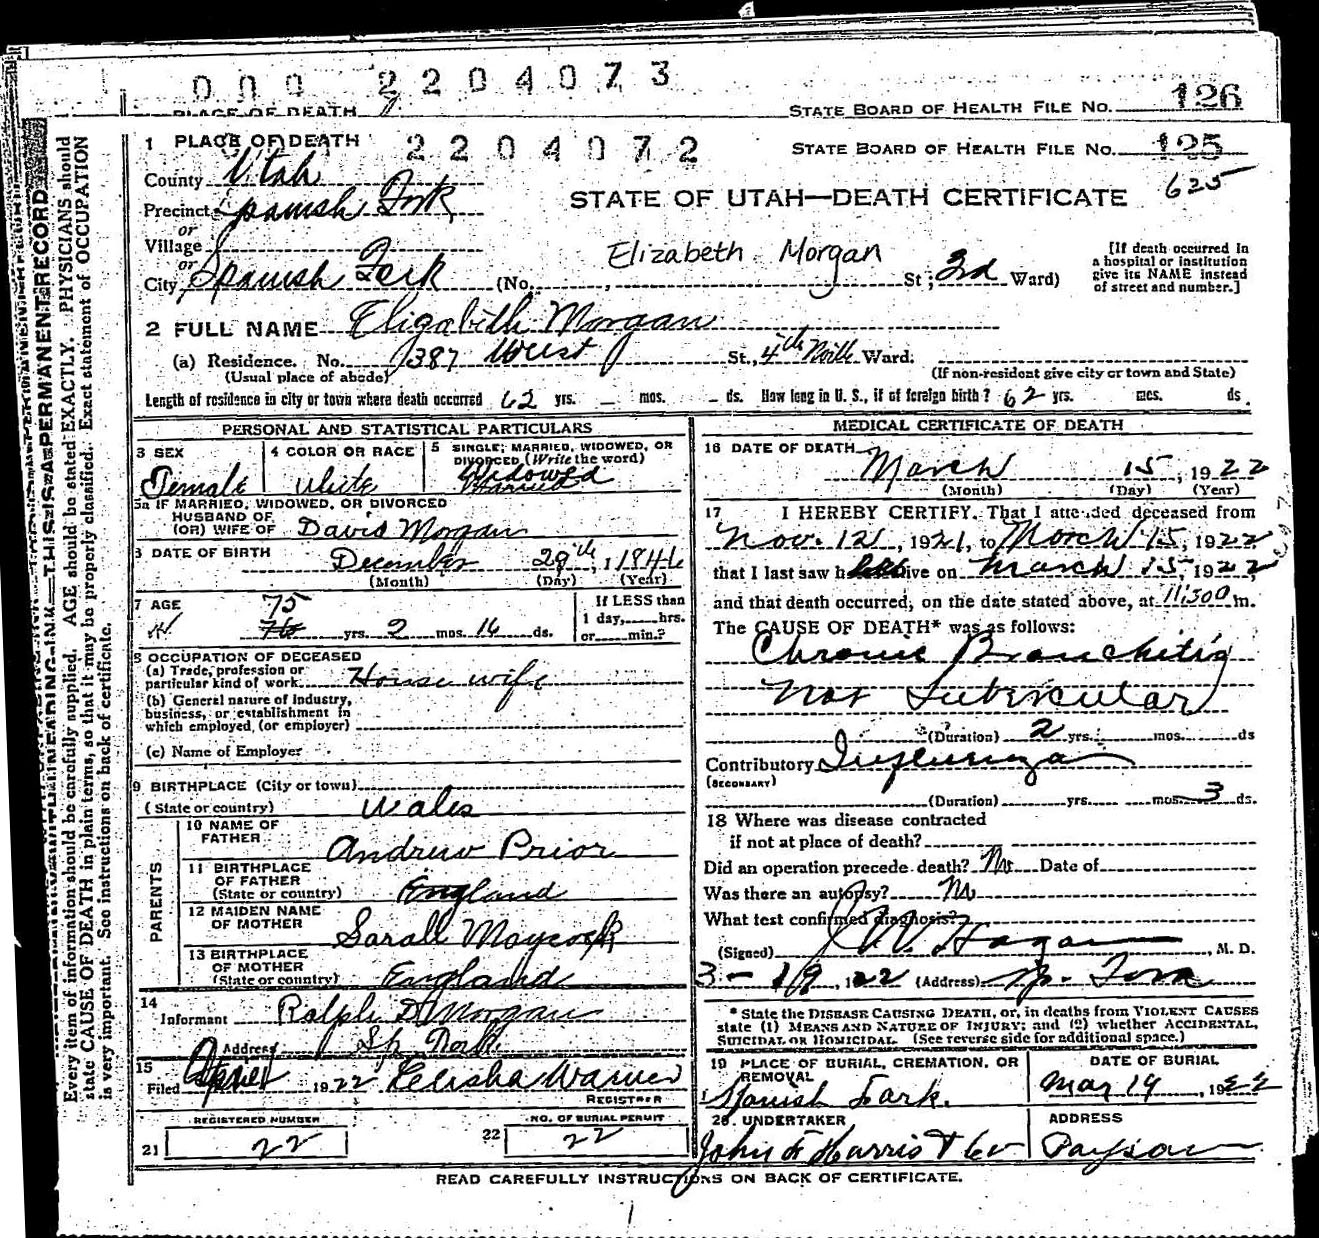 0 0 0 2 2 0 4 0 7 3
PLACE OF DEATH
STATE BOARD OF HEALTH FILE NO. 126
1 PLACE OF DEATH
2 2 0 4 0 7 2
STATE BOARD OF HEALTH FILE NO. 125
625
County Utah
STATE OF UTAH—DEATH CERTIFICATE
Precinct Spanish Fork
or
Village
or
City Spanish Fork (No. , Elizabeth Morgan St; 3rd Ward)
[If death occurred in
a hospital or institution
give its NAME instead
of street and number.]
2 FULL NAME Elizabeth Morgan
(a) Residence. No. 387 West St., 4th Ward.
(Usual place of abode)
(If non-resident give city or town and State)
Length of residence in city or town where death occurred 62 yrs. — mos. — ds. How long in U. S., if of foreign birth? 62 yrs. mos. ds.
PERSONAL AND STATISTICAL PARTICULARS
3 SEX
Female
4 COLOR OR RACE
White
5 SINGLE, MARRIED, WIDOWED, OR
DIVORCED (Write the word)
Widowed
Married
5a IF MARRIED, WIDOWED, OR DIVORCED
HUSBAND OF
(OR) WIFE OF David Morgan
6 DATE OF BIRTH
December 29th, 1846
(Month) (Day) (Year)
7 AGE
75
76 yrs. 2 mos. 16 ds.
If LESS than
1 day, hrs.
or min.?
8 OCCUPATION OF DECEASED
(a) Trade, profession or
particular kind of work House wife
(b) General nature of industry,
business, or establishment in
which employed, (or employer)
(c) Name of Employer
9 BIRTHPLACE (City or town)
(State or country) Wales
PARENTS
10 NAME OF
FATHER Andrew Prior
11 BIRTHPLACE
OF FATHER
(State or country) England
12 MAIDEN NAME
OF MOTHER Sarah Maycock
13 BIRTHPLACE
OF MOTHER
(State or country) England
14
Informant Ralph D Morgan
Address Sp. Fork
15
Filed 1922 Elisha Warner
REGISTRER
REGISTERED NUMBER
21 22
NO. OF BURIAL PERMIT
22 22
MEDICAL CERTIFICATE OF DEATH
16 DATE OF DEATH
March 15, 1922
(Month) (Day) (Year)
17 I HEREBY CERTIFY, That I attended deceased from
Nov. 12, 1921, to March 15, 1922
that I last saw her alive on March 15, 1922
and that death occurred, on the date stated above, at 11:300 m.
The CAUSE OF DEATH* was as follows:
Chronic Bronchitis
Not Tubercular
(Duration) 2 yrs. mos. ds
Contributory Influenza
(SECONDARY)
(Duration) yrs. mos. 3 ds.
18 Where was disease contracted
if not at place of death?
Did an operation precede death? No Date of
Was there an autopsy? No
What test confirmed diagnosis?
(Signed) J. W. Hagan, M. D.
3 - 19, 1922 (Address) Sp. Fork
* State the DISEASE CAUSING DEATH, or, in deaths from VIOLENT CAUSES
state (1) MEANS AND NATURE OF INJURY; and (2) whether ACCIDENTAL,
SUICIDAL OR HOMICIDAL. (See reverse side for additional space.)
19 PLACE OF BURIAL, CREMATION, OR
REMOVAL
Spanish Fork.
DATE OF BURIAL
Mar 19, 1922
20. UNDERTAKER
John F Harris & Co
ADDRESS
Payson
READ CAREFULLY INSTRUCTIONS ON BACK OF CERTIFICATE.
THIS IS A PERMANENT RECORD
Every item of information should be carefully supplied. AGE should be stated EXACTLY. PHYSICIANS should
state CAUSE OF DEATH in plain terms, so that it may be properly classified. Exact statement of OCCUPATION
is very important. See instructions on back of certificate.